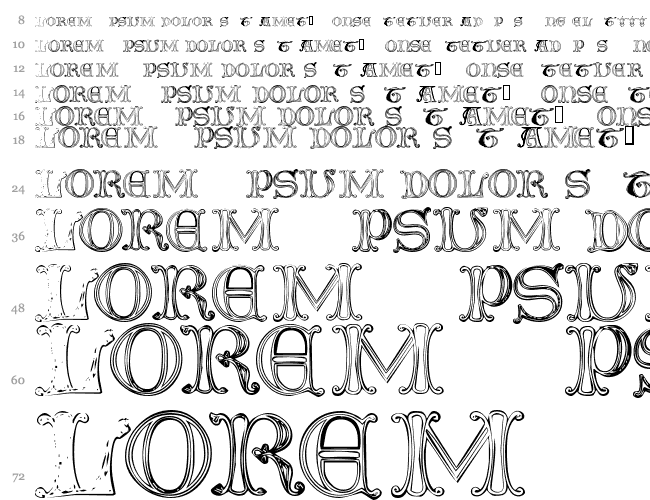 8 LOREM PSUM DOLOR S T AMET▯ ONSE TETUER AD P S NG EL
10 LOREM PSUM DOLOR S T AMET▯ ONSE TETUER AD P S NG
12 LOREM PSUM DOLOR S T AMET▯ ONSE TETUER
14 LOREM PSUM DOLOR S T AMET▯ ONSE
16 LOREM PSUM DOLOR S T AMET▯ ONS
18 LOREM PSUM DOLOR S T AMET▯
24 LOREM PSUM DOLOR S T
36 LOREM PSUM DO
48 LOREM PSU
60 LOREM PS
72 LOREM